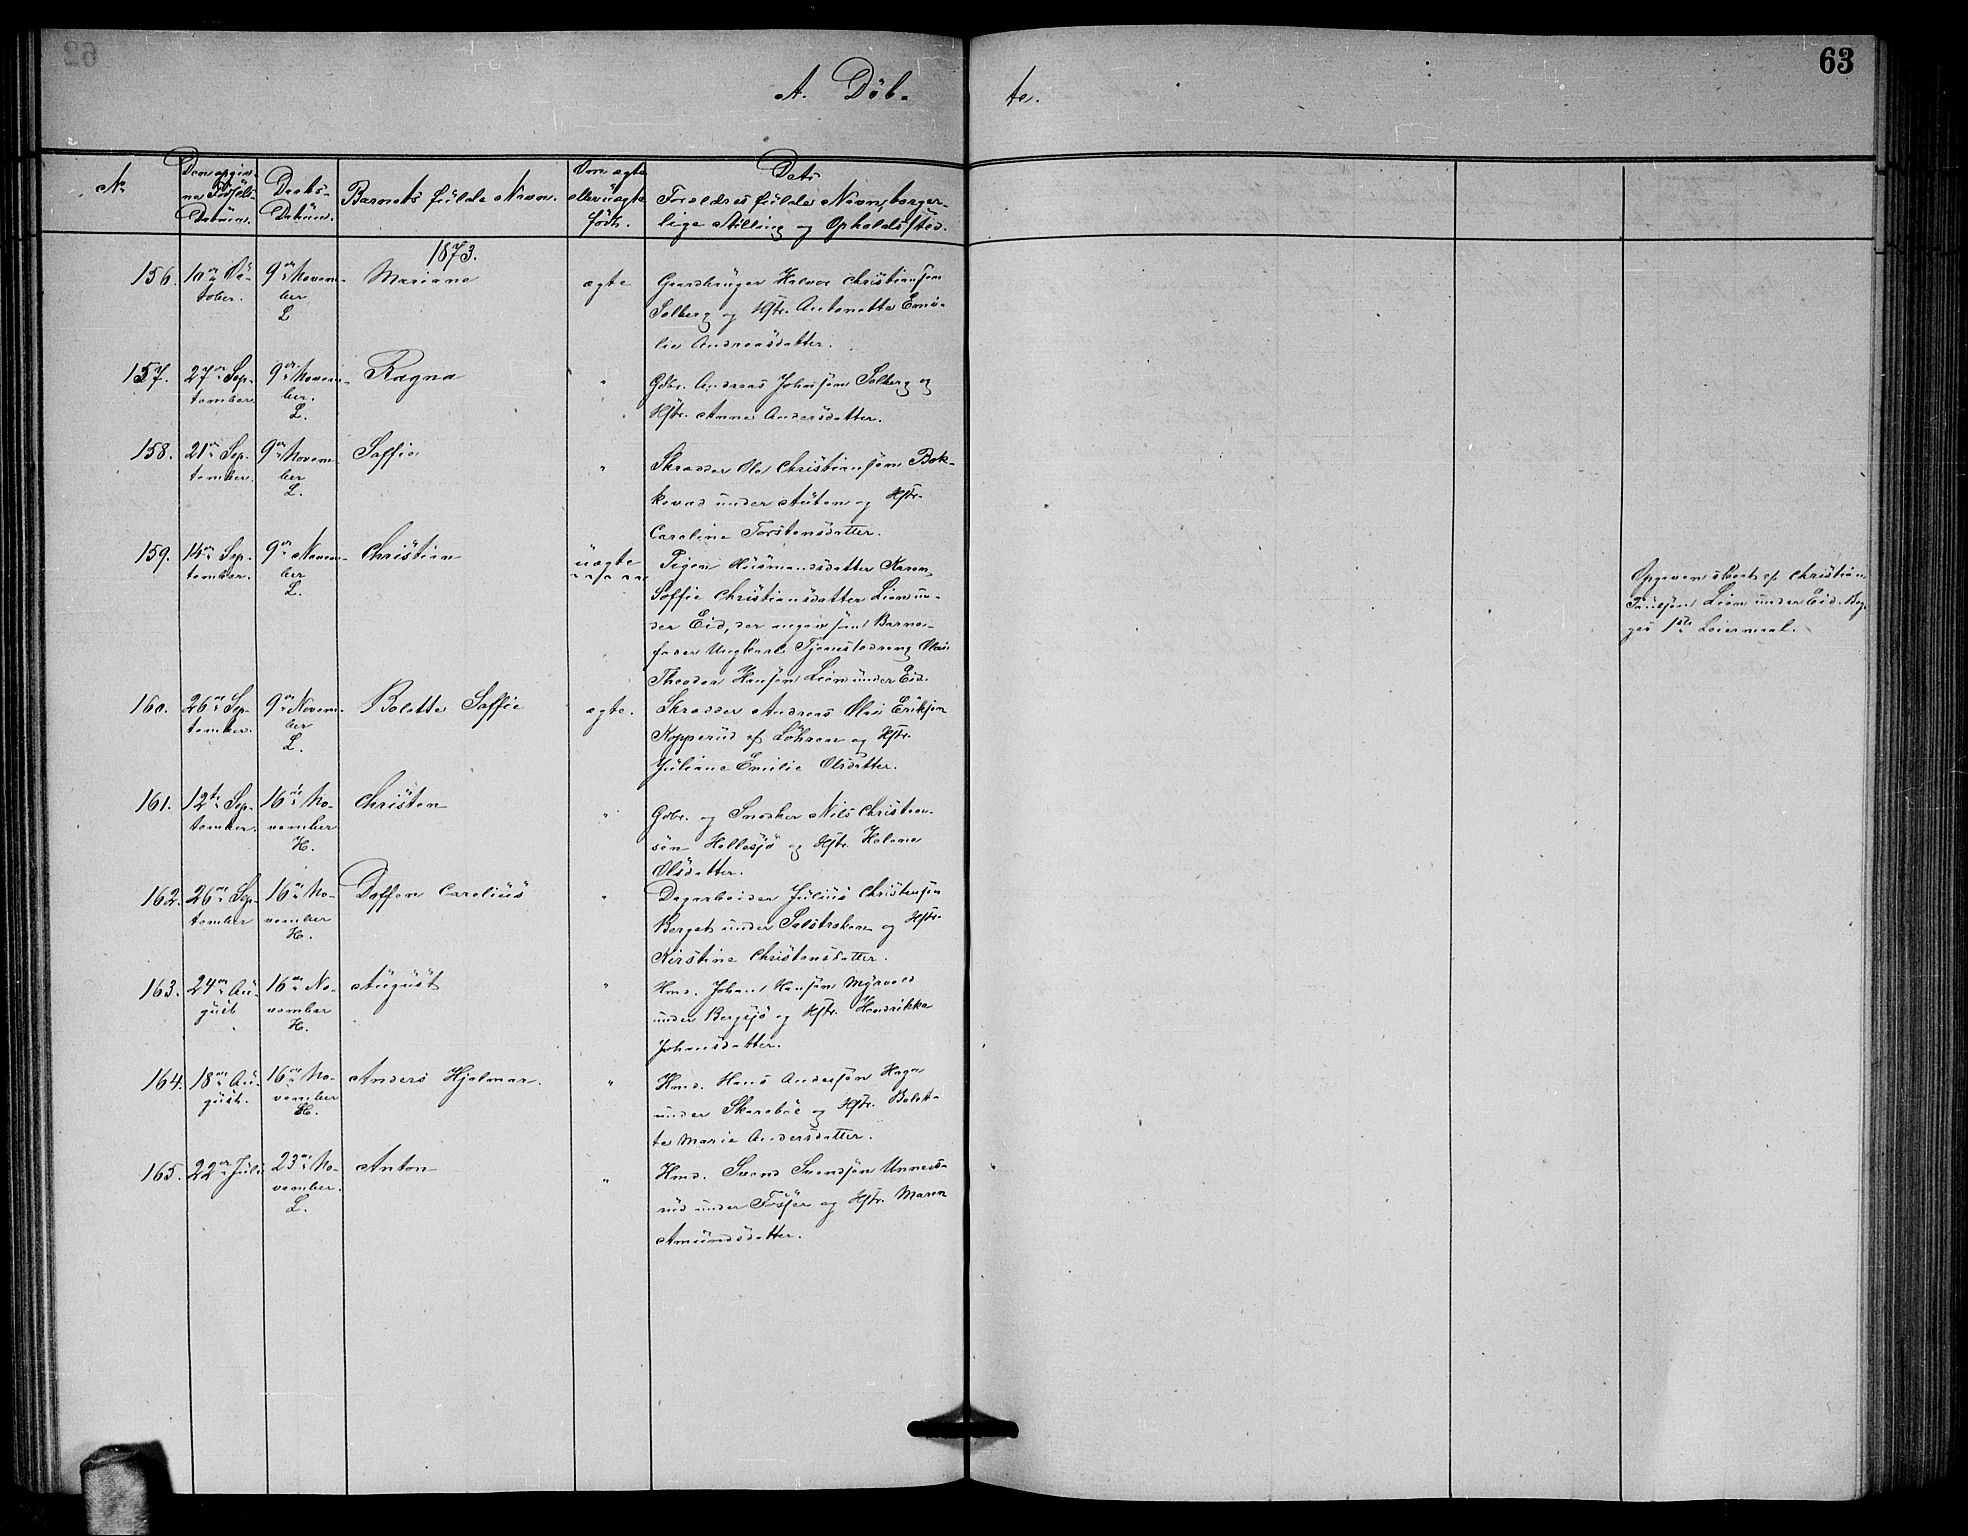 63
A. Døb-
te.
No
Den opgiv-
ne Fødsels-
Datum.
Daabs-
Datum.
Barnets fulde Navn.
Om ægte
eller uægte
født.
Dets
Forældres fulde Navn, borger-
lige Stilling og Opholdssted.
1873.
156. 10de Oc-
tober.
9de Novem-
ber
L
Mariane
ægte
Gaardbruger Halvor Christiansen
Solberg og Hstr. Antonette Emi-
lie Andreasdatter.
157. 27de Sep-
tember.
9de Novem-
ber.
L.
Ragna
"
Gdbr. Andreas Johnsen Solberg og
Hstr. Anne Andersdatter.
158. 21de Sep-
tember.
9de Novem-
ber
L.
Soffie
"
Skrædder Ole Christiansen Bek-
kevad under Auten og Hstr.
Caroline Torstensdatter.
159. 14de Sep-
tember.
9de Novem-
ber
L.
Christian
uægte
Pigen Husmandsdatter Karen
Soffie Christiansdatter Lien un-
der Eid, der angav som Barne-
fader Ungkarl Tjenestedreng Olai
Theodor Hansen Lien under Eid.
Opgaven skeet af Christian
Lien under Eid. Beg-
ges 1ste Leiermaal.
160. 26de Sep-
tember.
9de Novem-
ber
L.
Bolette Soffie
ægte.
Skrædder Andreas Olai Eriksen
Kopperud af Løhren og Hstr.
Juliane Emilie Olsdatter.
161. 12te Sep-
tember.
16de No-
vember
H.
Christen
"
Gdbr. og Snedker Nils Christian-
sen Hellesjø og Hstr. Helene
Olsdatter.
162. 26de Sep-
tember
16de No-
vember
H.
Deffen Carelius
"
Dagarbeider Julius Christensen
Berget under Salstrøken og Hstr.
Kirstine Christensdatter.
163. 24de Au-
gust
16de No-
vember
H.
August
"
Hmd. Johan Hansen Myrvold
under Bergsjø og Hstr. Hendrikke
Johansdatter.
164. 18de Au-
gust.
16de No-
vember
H.
Anders Hjalmar.
"
Hmd. Hans Andersen Haga
under Skarebøl og Hstr. Bolet-
te Marie Andersdatter.
165. 22de Juli
23de No-
vember.
L.
Anton
"
Hmd. Svend Svendsen Unners-
rud under Fosser og Hstr. Maren
Amundsdatter.